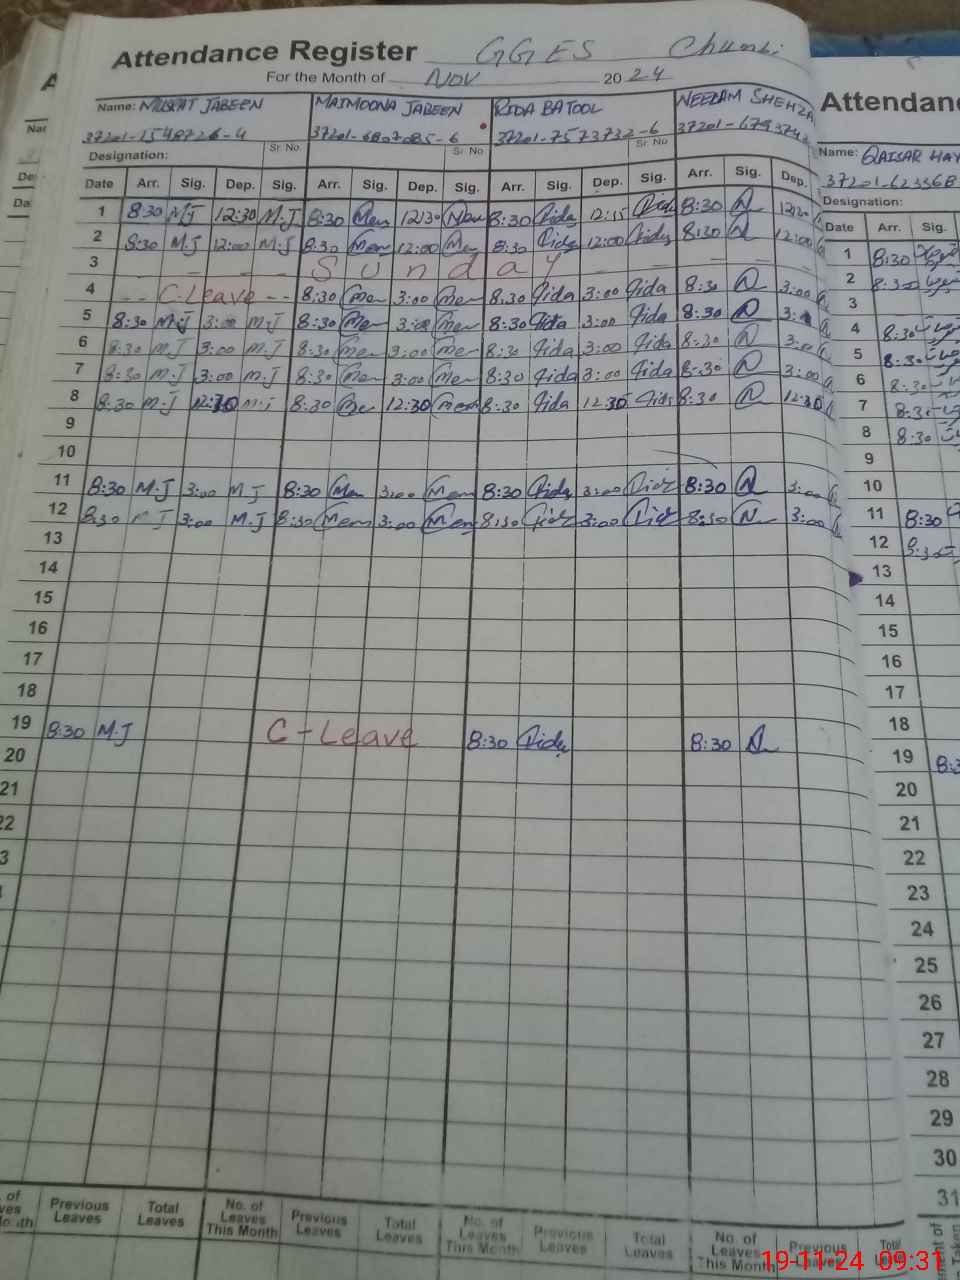 Attendance Register GGES Chumbi
For the Month of NOV 2024
Name: MUSRAT JABEEN MAIMOONA JABEEN RIDA BATOOL NEELAM SHEHZA
37201-1548726-4 37201-6807085-6 37201-7573732-6 37201-679
Designation: Sr. No. Sr. No. Sr. No
Date Arr. Sig. Dep. Sig. Arr. Sig. Dep. Sig. Arr. Sig. Dep. Sig. Arr. Sig. Dep.
1 8:30 MJ 12:30 M.J 8:30 Mem 12:30 8:30 Rida 12:15 Rida 8:30 N
2 8:30 M.J 12:00 M.J 8:30 Mem 12:00 Mem 8:30 Rida 12:00 Rida 8:30 N 12:00
3 - - - Sunday - - - -
4 -- C-Leave -- 8:30 Mem 3:00 Mem 8:30 Rida 3:00 Rida 8:30 N 3:00
5 8:30 M.J 3:00 M.J 8:30 Mem 3:00 Mem 8:30 Rida 3:00 Rida 8:30 N
6 8:30 M.J 3:00 M.J 8:30 Mem 3:00 Mem 8:30 Rida 3:00 Rida 8:30 N 3:00
7 8:30 M.J 3:00 M.J 8:30 Mem 3:00 Mem 8:30 Rida 3:00 Rida 8:30 N 3:00
8 8:30 M.J 12:30 M.J 8:30 Me 12:30 Mem 8:30 Rida 12:30 Rida 8:30 N 12:30
9
10
11 8:30 M.J 3:00 M.J 8:30 Mem 3:00 Mem 8:30 Rida 3:00 Rida 8:30 N 3:00
12 8:30 MJ 3:00 M.J 8:30 Mem 3:00 Mem 8:30 Rida 3:00 Rida 8:30 N 3:00
13
14
15
16
17
18
19 8:30 M.J C-Leave 8:30 Rida 8:30 N
20
21
22
3
Previous Leaves Total Leaves No. of Leaves This Month Previous Leaves Total Leaves No. of Leaves This Month Previous Leaves Total Leaves No. of Leaves This Month Previous Leaves Total Leaves
Attendan
Name: QAISAR HAY
37201-62336B
Designation:
Date Arr. Sig.
1 8:30
2 8:30
3
4 8:30
5 8:30
6 8:30
7 8:30
8 8:30
9
10
11 8:30
12 8:30
13
14
15
16
17
18
19 8:3
20
21
22
23
24
25
26
27
28
29
30
31
19-11-24 09:31